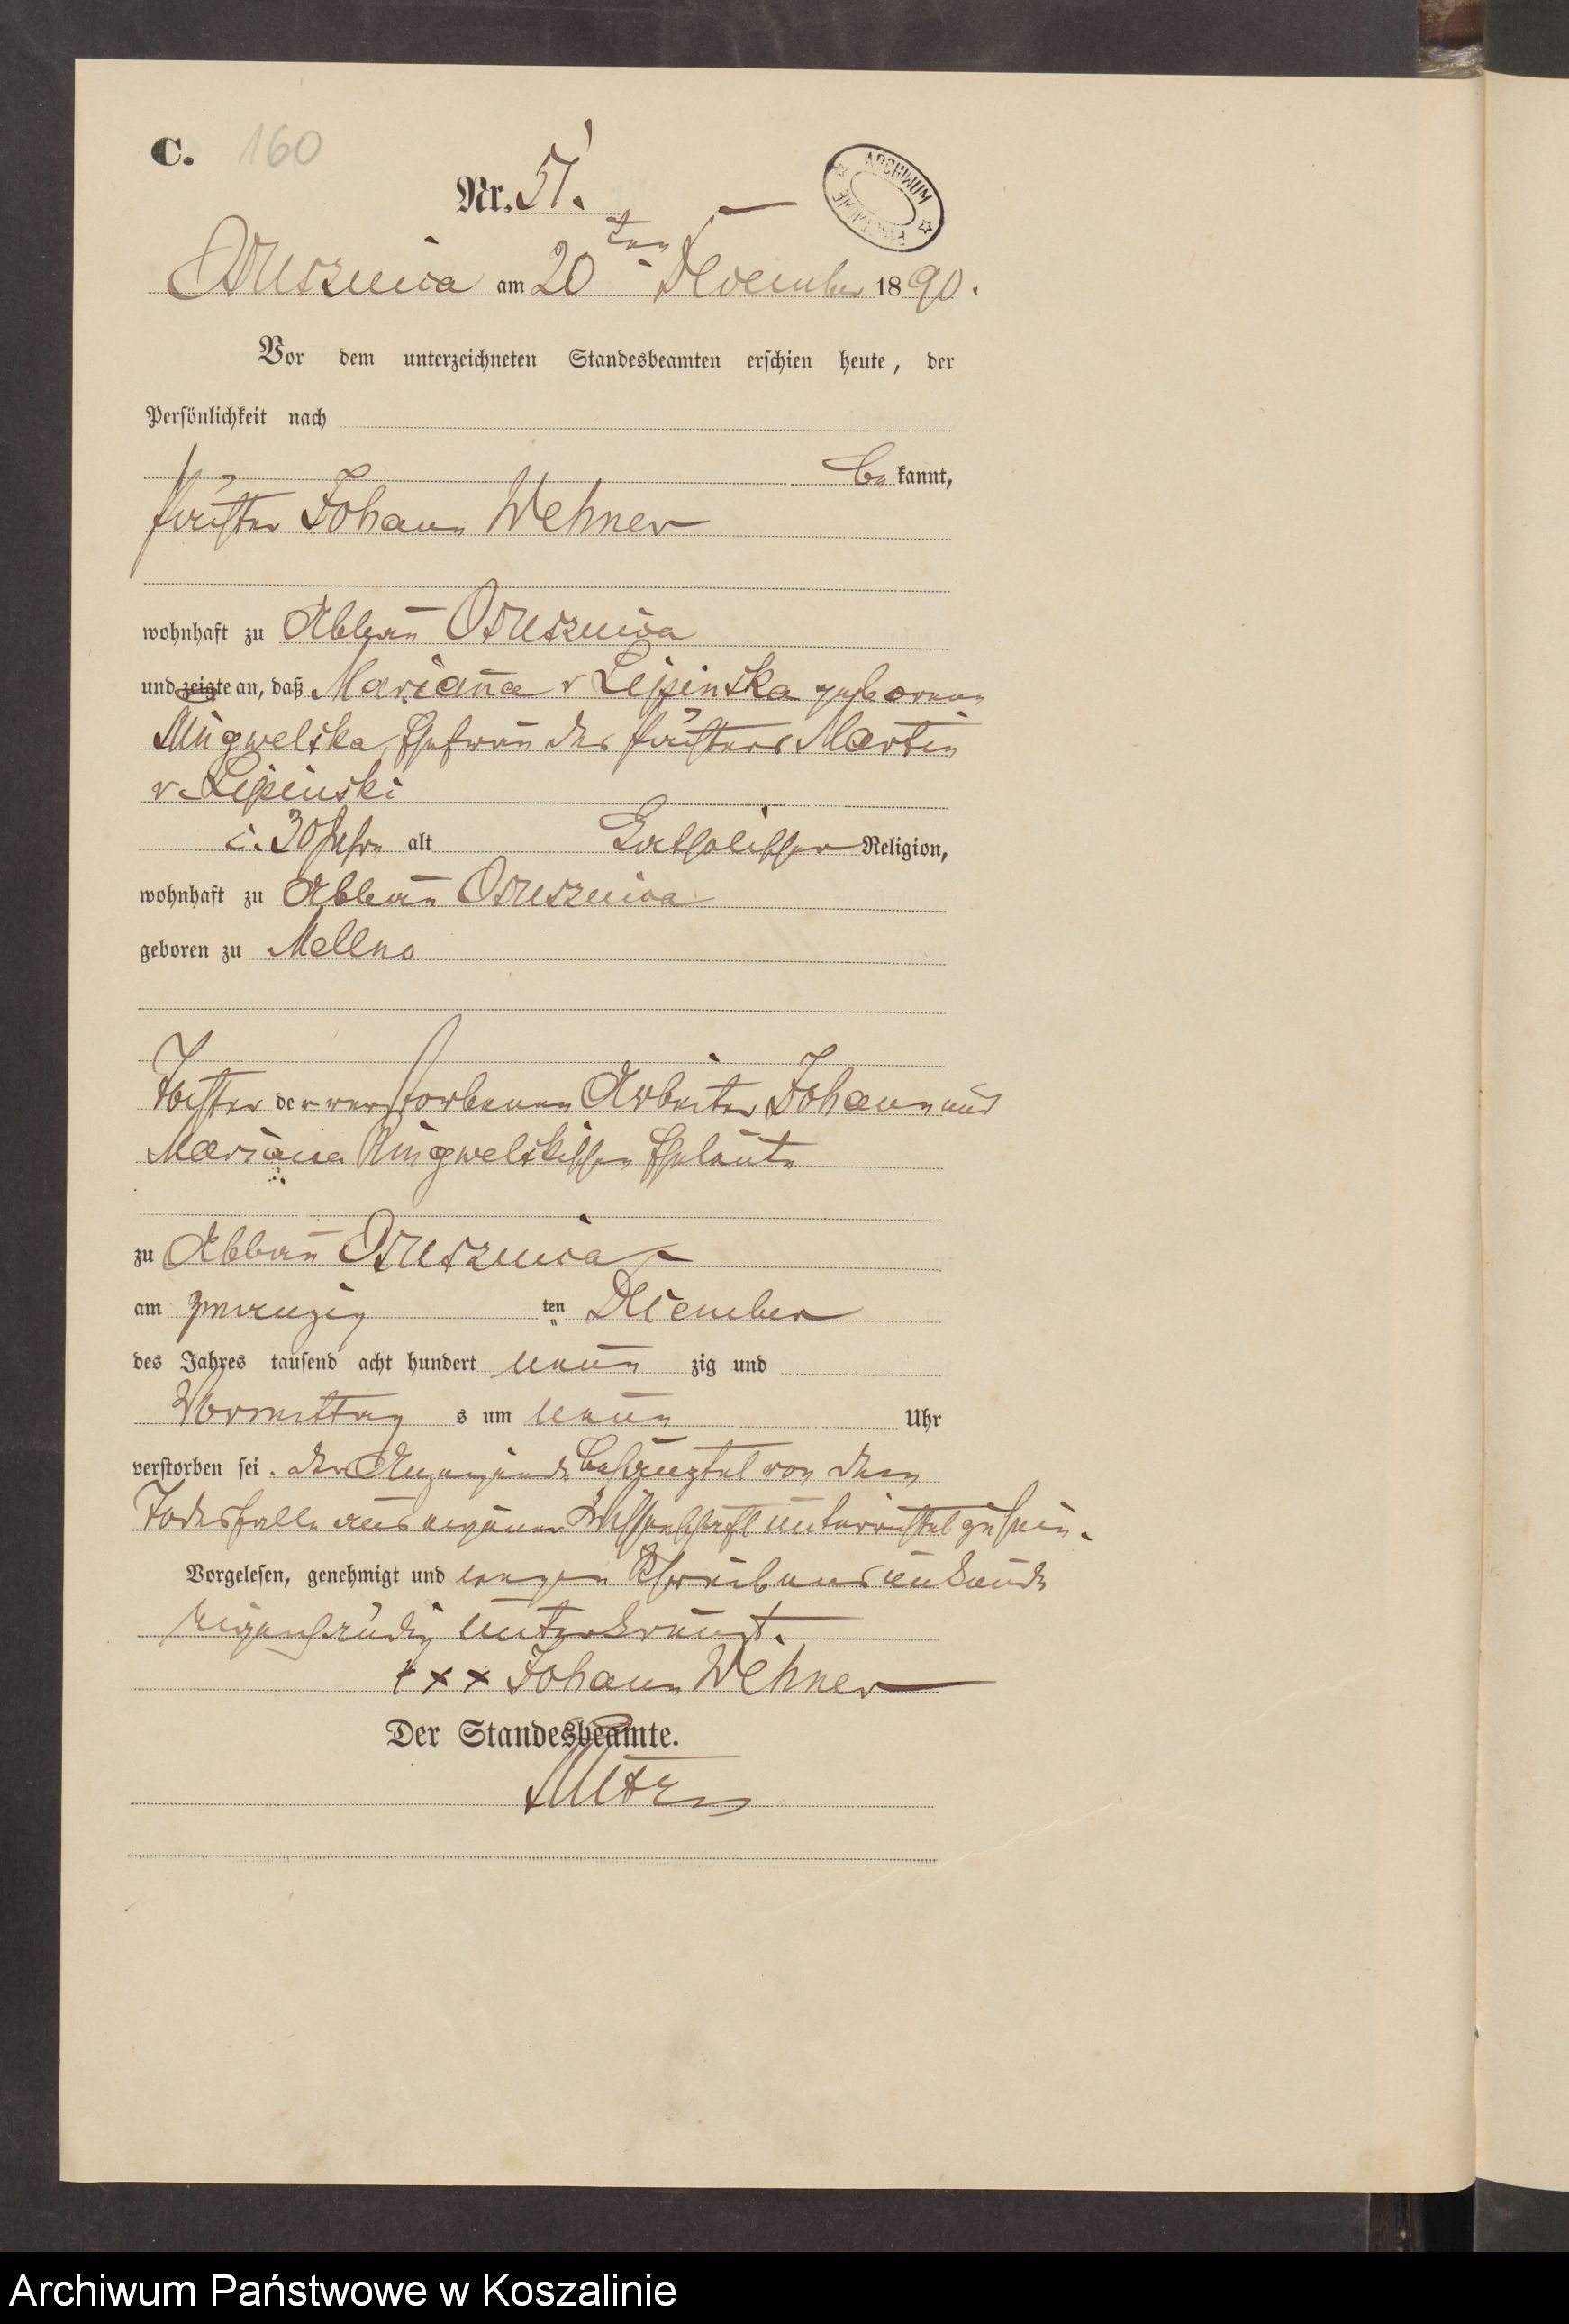 C. 160
Nr. 51.
ARCHIWUM
Osusznica am 20ten December 1890.
Vor dem unterzeichneten Standesbeamten erschien heute, der
Persönlichkeit nach
be kannt,
Johann Wehner
wohnhaft zu Abbau Osusznica
und zeigte an, daß Marianna v Lipinska geborene
Ringwelska, Ehefrau des Martin
v. Lipinski
c. 30 Jahre alt Katholischer Religion,
wohnhaft zu Abbau Osusznica
geboren zu Mellno
Tochter der verstorbenen Arbeiter Johann und
Mariana Ringwelskischen Eheleute
zu Abbau Osusznica
am zwanzig ten December
des Jahres tausend acht hundert neun zig und
Vormittag s um neun Uhr
verstorben sei. Der Anzeigende bekundet von dem
Todesfalle aus eigener Wissenschaft unterrichtet zu sein.
Vorgelesen, genehmigt und wegen Schreibensunkunde
eigenhändig unterkreuzt.
+ x x Johann Wehner
Der Standesbeamte.
Archiwum Państwowe w Koszalinie